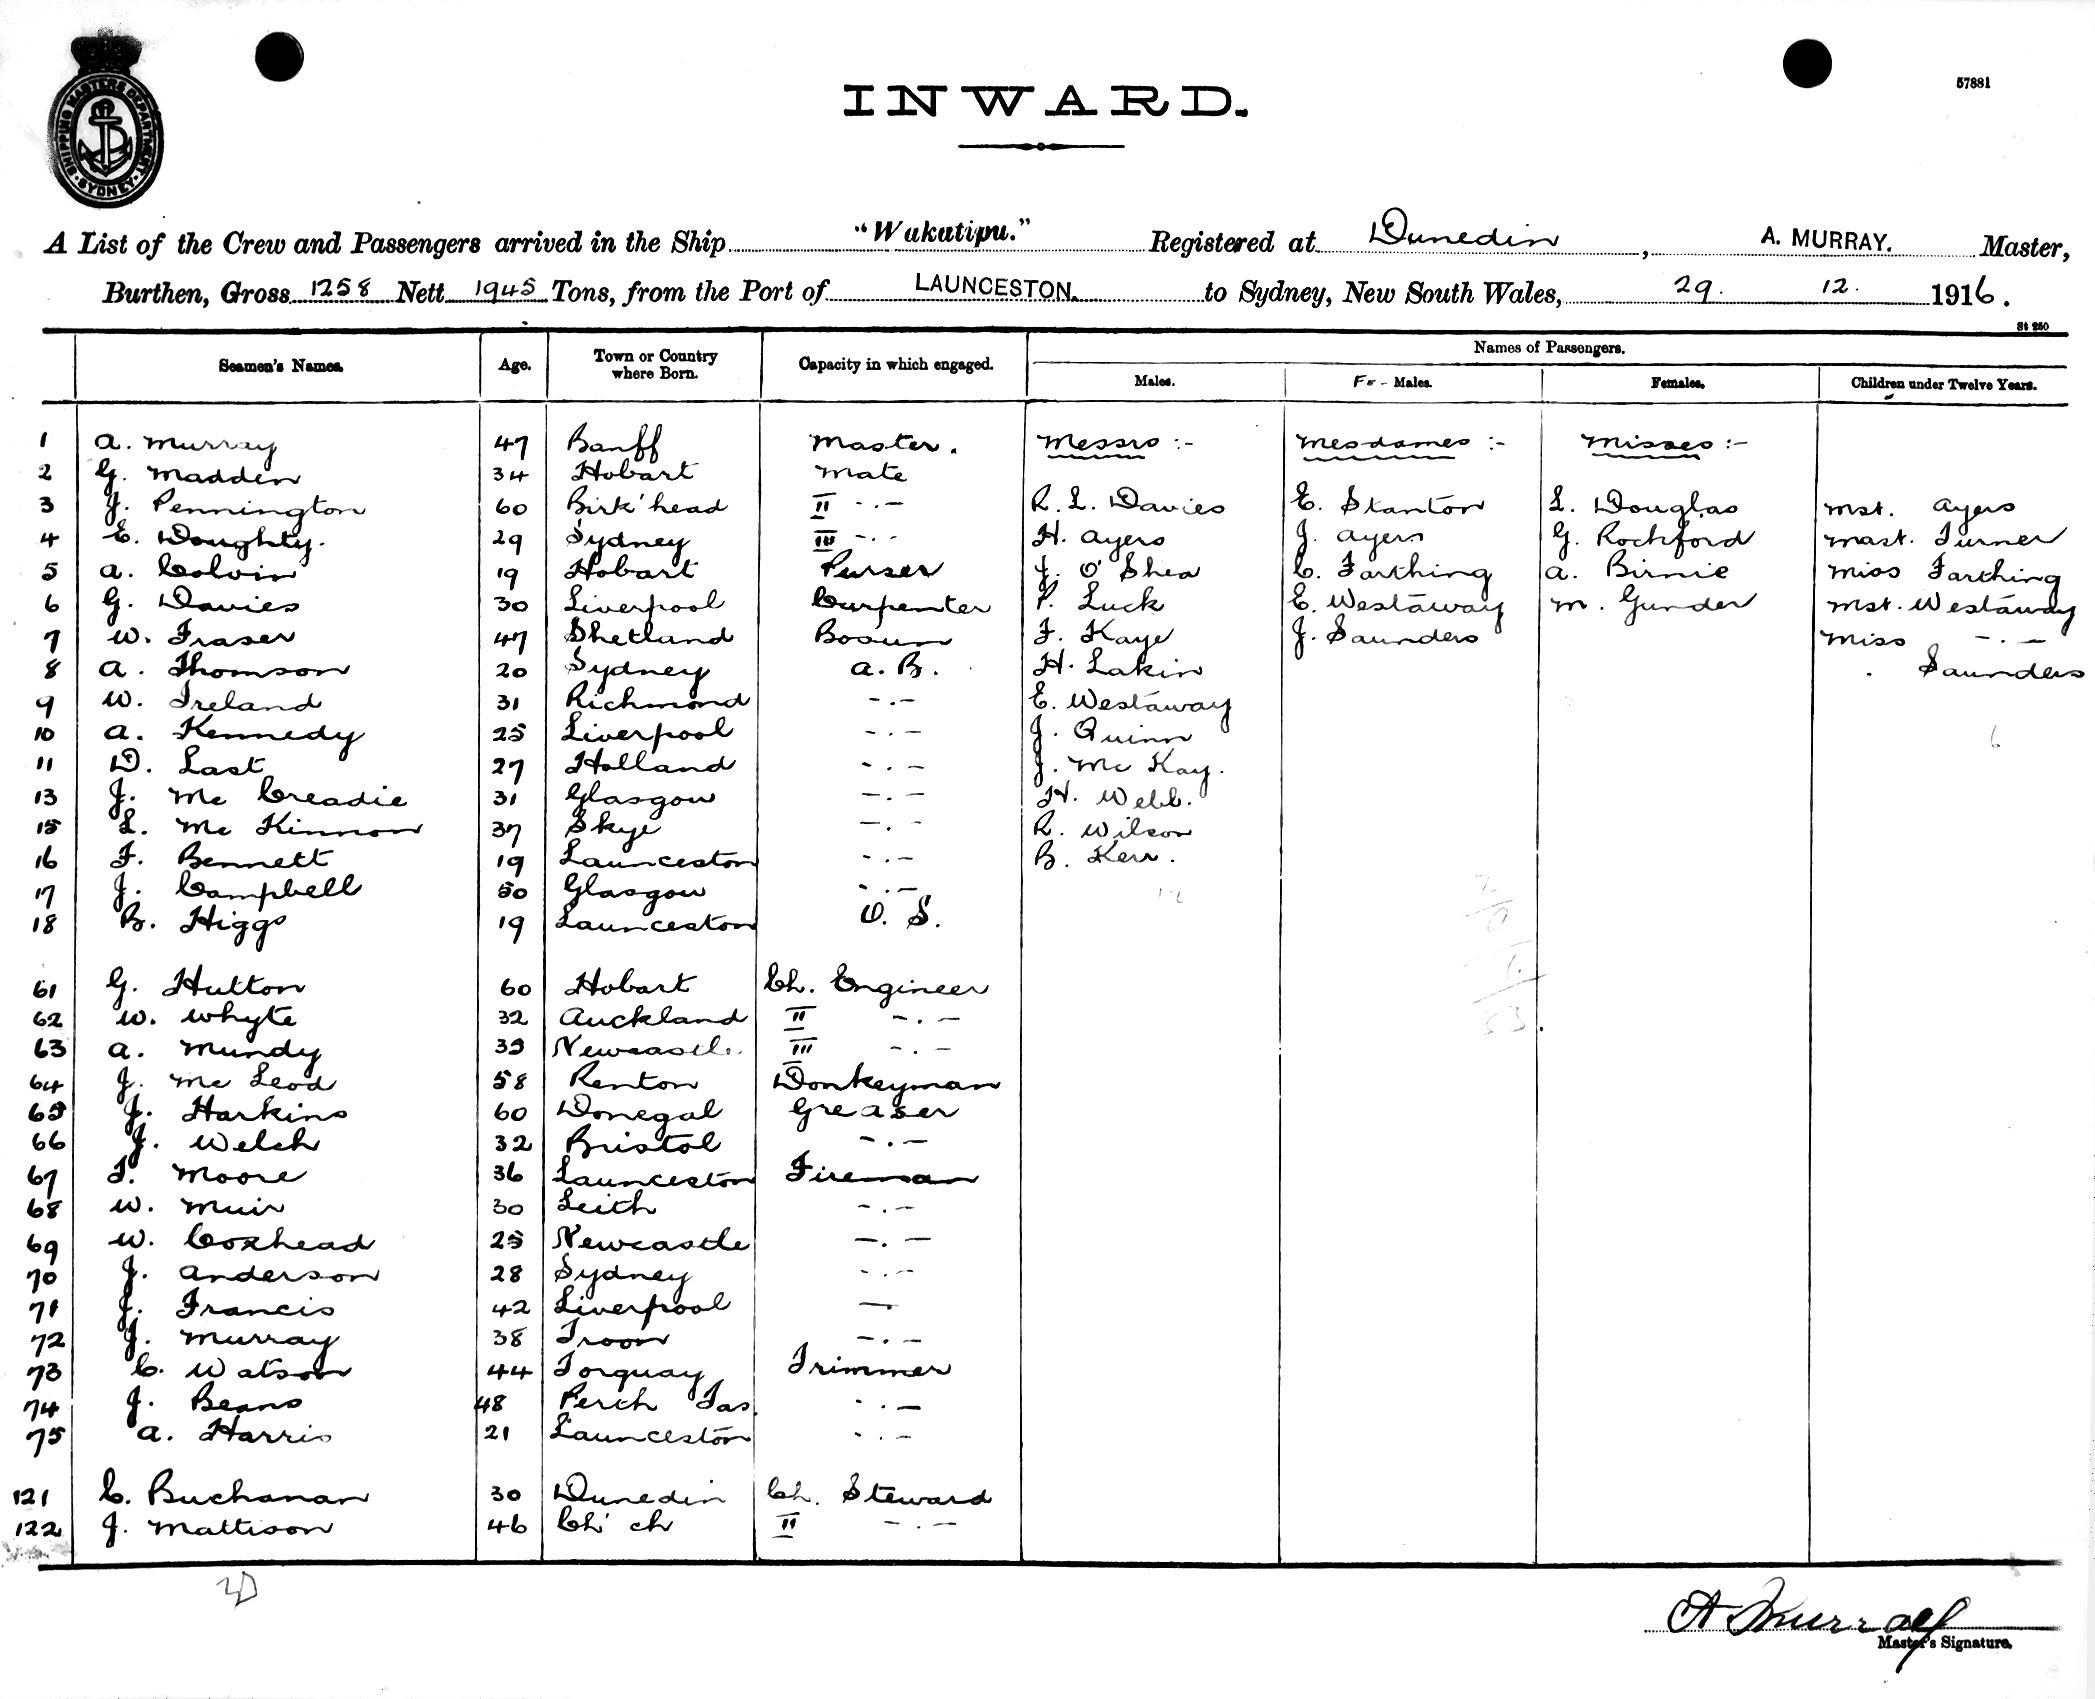 SHIPPING MASTERS DEPARTMENT SYDNEY
57881
INWARD.
A List of the Crew and Passengers arrived in the Ship "Wakatipu." Registered at Dunedin, A. MURRAY. Master,
Burthen, Gross 1258 Nett 1945 Tons, from the Port of LAUNCESTON. to Sydney, New South Wales, 29. 12. 1916.
St 250
Seamen's Names. Age. Town or Country where Born. Capacity in which engaged. Names of Passengers.
Males. Fe-Males. Females. Children under Twelve Years.
1 A. Murray 47 Banff Master. Messrs :- Mesdames :- Misses :-
2 G. Madden 34 Hobart Mate
3 J. Pennington 60 Birk'head II -.- R. L. Davies E. Stanton L. Douglas Mst. Ayers
4 E. Doughty. 29 Sydney III -.- H. Ayers J. Ayers G. Rockford Mast. Turner
5 A. Colvin 19 Hobart Purser J. O'Shea C. Farthing A. Birnie Miss Farthing
6 G. Davies 30 Liverpool Carpenter P. Luck E. Westaway M. Gunder Mst. Westaway
7 W. Fraser 47 Shetland Bosun F. Kaye J. Saunders Miss -.-
8 A. Thomson 20 Sydney A. B. H. Lakin Saunders
9 W. Ireland 31 Richmond -.- E. Westaway
10 A. Kennedy 25 Liverpool -.- J. Quinn 6
11 D. Last 27 Holland -.- J. Mc Kay.
13 J. Mc Creadie 31 Glasgow -.- H. Webb.
15 L. Mc Kinnon 37 Skye -.- R. Wilson
16 F. Bennett 19 Launceston -.- B. Kerr.
17 J. Campbell 50 Glasgow -.- 12
18 B. Higgs 19 Launceston O. S.
61 G. Hutton 60 Hobart Ch. Engineer
62 W. Whyte 32 Auckland II -.-
63 A. Mundy 35 Newcastle III -.-
64 J. Mc Leod 58 Renton Donkeyman
65 J. Harkins 60 Donegal Greaser
66 J. Welch 32 Bristol -.-
67 T. Moore 36 Launceston Fireman
68 W. Muir 30 Leith -.-
69 W. Coxhead 25 Newcastle -.-
70 J. Anderson 28 Sydney -.-
71 J. Francis 42 Liverpool -.
72 J. Murray 38 Troon -.-
73 C. Watson 44 Torquay Trimmer
74 J. Beans 48 Perth Tas. -.-
75 A. Harris 21 Launceston -.-
121 C. Buchanan 30 Dunedin Ch. Steward
122 J. Mattison 46 Ch'ch II -.-
A Murray
Master's Signature.